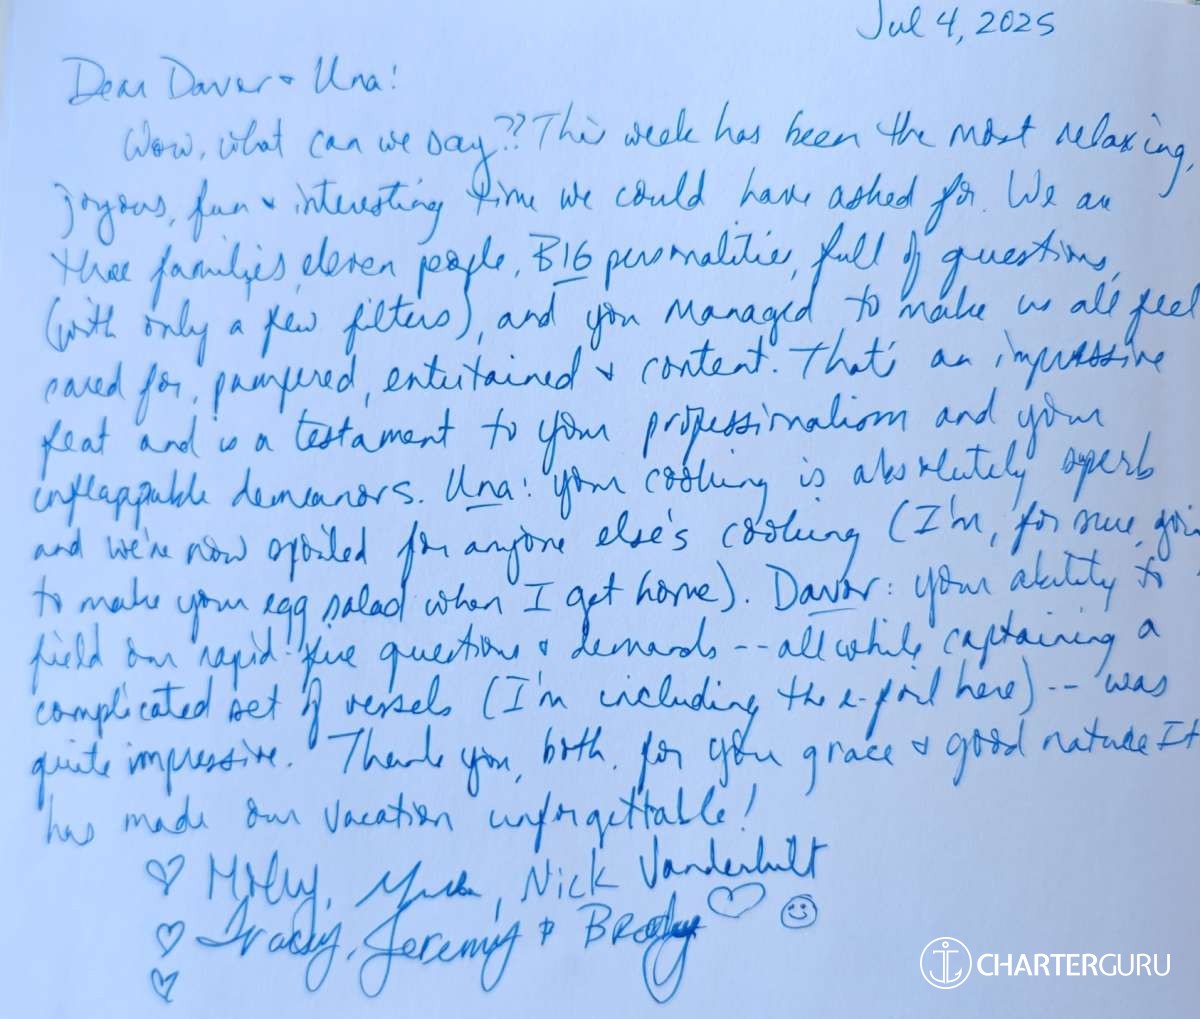 Jul 4, 2025
Dear Davor & Una!
Wow, what can we say?? This week has been the most relaxing,
joyous, fun & interesting time we could have asked for. We are
three families, eleven people, BIG personalities, full of questions,
(with only a few filters), and you managed to make us all feel
cared for, pampered, entertained & content. That's an impressive
feat and is a testament to your professionalism and your
unflappable demeanors. Una: your cooking is absolutely superb
and we're now spoiled for anyone else's cooking (I'm, for sure, goi
to make your egg salad when I get home). Davor: your ability to
field our rapid-fire questions & demands -- all while captaining a
complicated set of vessels (I'm including the e-foil here) -- was
quite impressive. Thank you, both, for you grace & good nature It
has made our vacation unforgettable!
♡ Molly, Nick Vanderbilt
♡ Tracey, Jeremy & Brody ♡ ☺
♡
CHARTERGURU